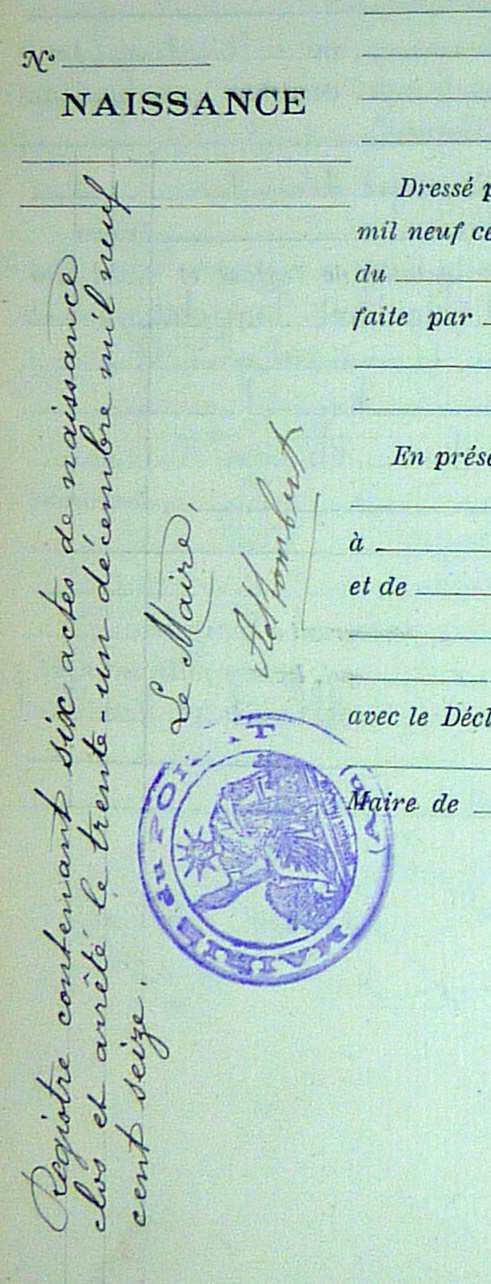 N°
NAISSANCE
Dressé p
mil neuf ce
du
faite par
En prése
à
et de
avec le Décl
Maire de
Registre contenant six actes de naissance
clos et arrêté le trente-un décembre mil neuf
cent seize.
Le Maire,
MAIRIE du